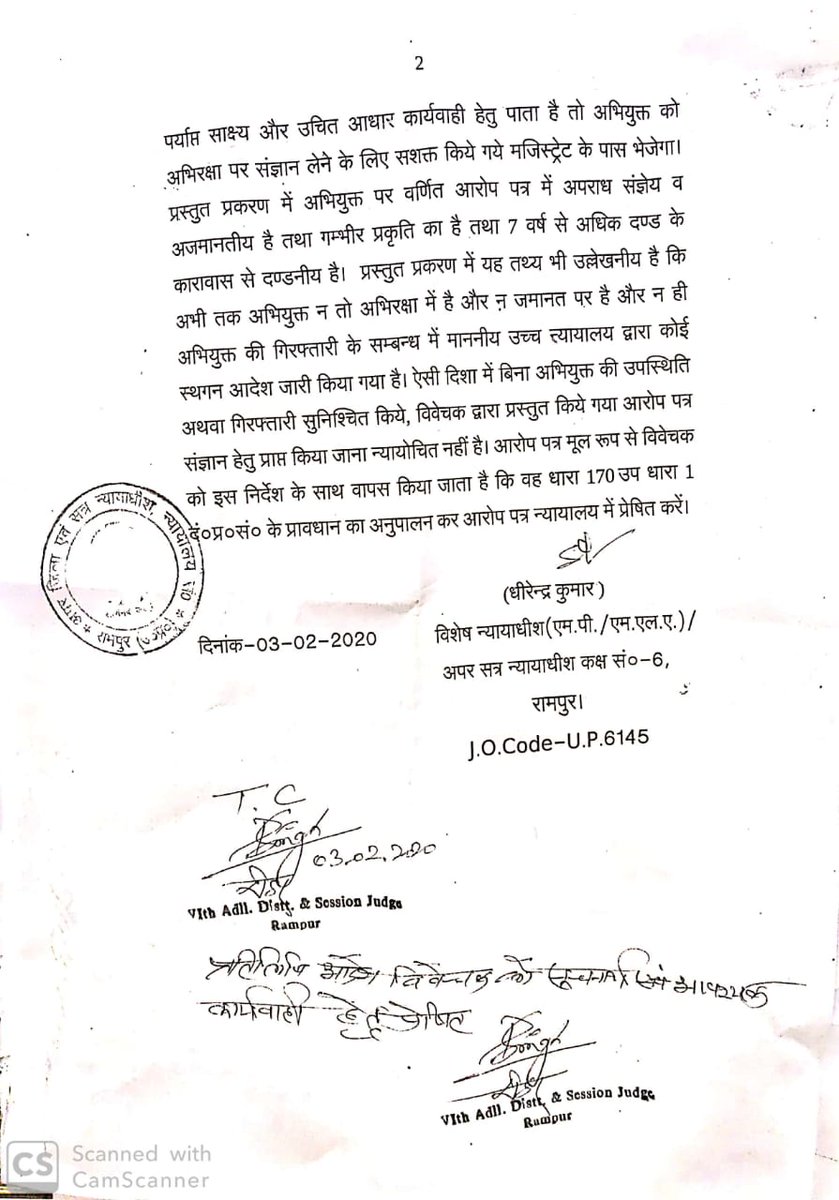 2
पर्याप्त साक्ष्य और उचित आधार कार्यवाही हेतु पाता है तो अभियुक्त को
अभिरक्षा पर संज्ञान लेने के लिए सशक्त किये गये मजिस्ट्रेट के पास भेजेगा।
प्रस्तुत प्रकरण में अभियुक्त पर वर्णित आरोप पत्र में अपराध संज्ञेय व
अजमानतीय है तथा गम्भीर प्रकृति का है तथा 7 वर्ष से अधिक दण्ड के
कारावास से दण्डनीय है। प्रस्तुत प्रकरण में यह तथ्य भी उल्लेखनीय है कि
अभी तक अभियुक्त न तो अभिरक्षा में है और न जमानत पर है और न ही
अभियुक्त की गिरफ्तारी के सम्बन्ध में माननीय उच्च त्यायालय द्वारा कोई
स्थगन आदेश जारी किया गया है। ऐसी दिशा में बिना अभियुक्त की उपस्थिति
अथवा गिरफ्तारी सुनिश्चित किये, विवेचक द्वारा प्रस्तुत किये गया आरोप पत्र
संज्ञान हेतु प्राप्त किया जाना न्यायोचित नहीं है। आरोप पत्र मूल रूप से विवेचक
को इस निर्देश के साथ वापस किया जाता है कि वह धारा 170 उप धारा 1
दं०प्र०सं० के प्रावधान का अनुपालन कर आरोप पत्र न्यायालय में प्रेषित करें।
अपर जिला एवं सत्र न्यायाधीश, न्यायालय
रामपुर (उ०प्र०)
(धीरेन्द्र कुमार )
दिनांक-03-02-2020
विशेष न्यायाधीश(एम.पी./एम.एल.ए.)/
अपर सत्र न्यायाधीश कक्ष सं०-6,
रामपुर।
J.O.Code-U.P.6145
T.C
03.02.2020
रीडर
VIth Adll. Distt. & Session Judge
Rampur
प्रतिलिपि आदेश विवेचक को सूचनार्थ एवं आवश्यक
कार्यवाही हेतु प्रेषित
रीडर
VIth Adll. Distt. & Session Judge
Rampur
CS
Scanned with
CamScanner